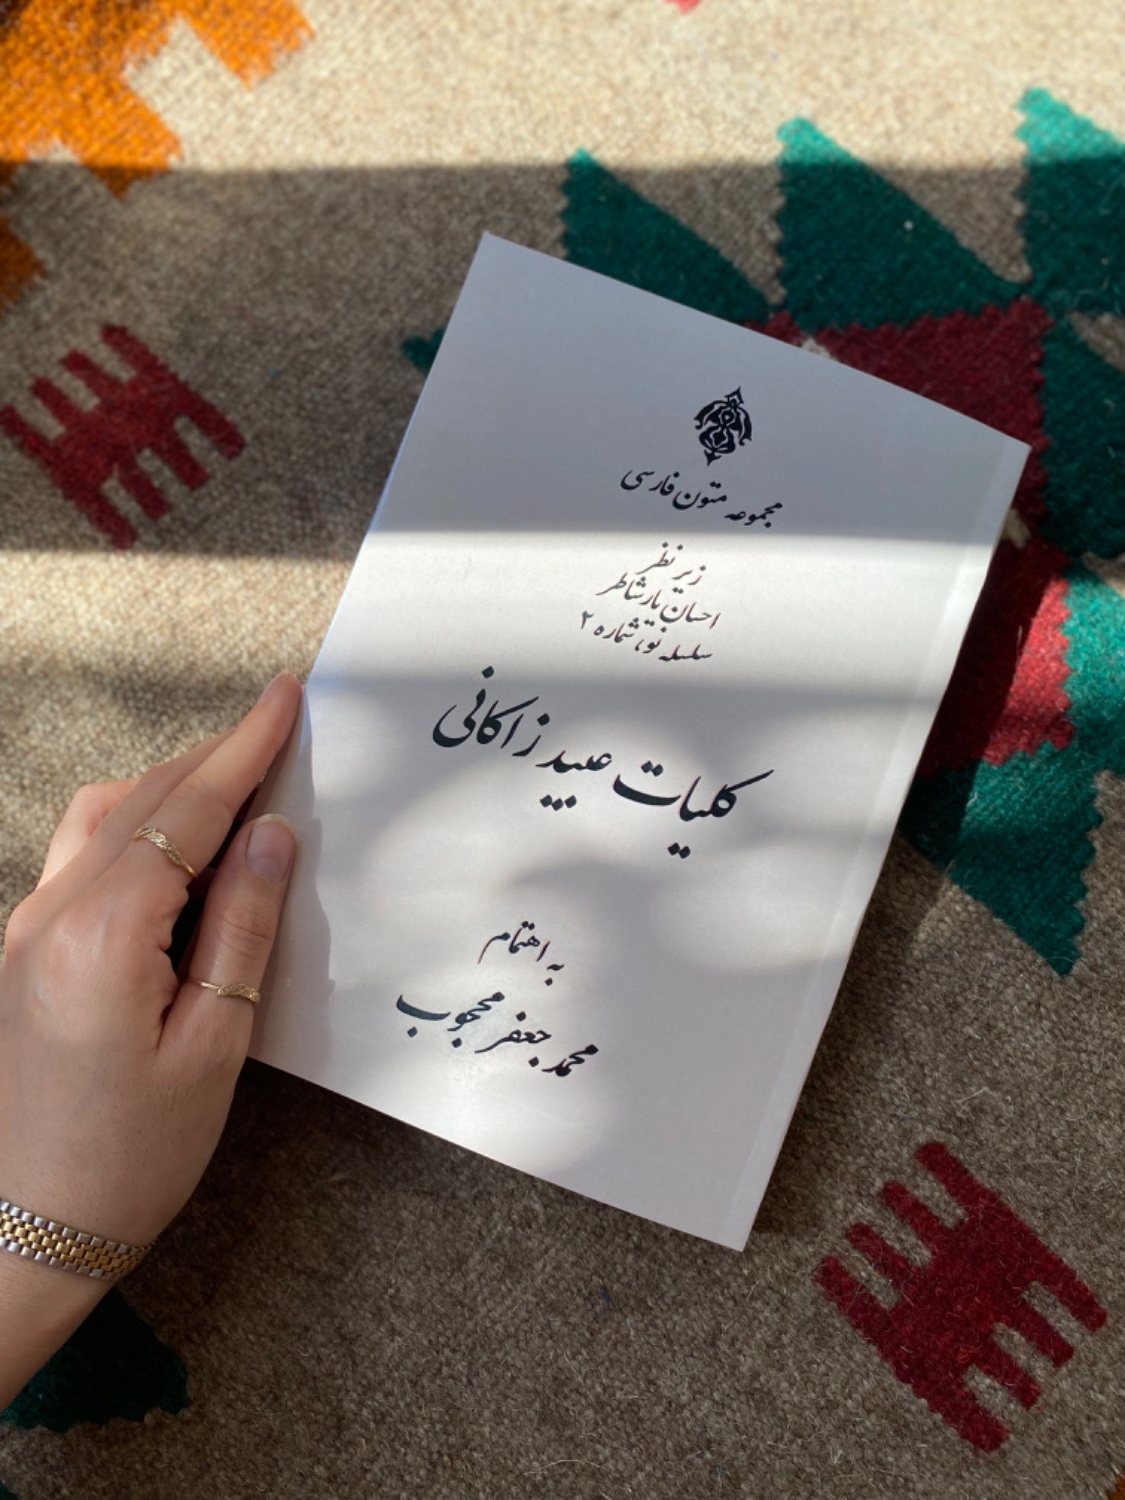 مجموعه متون فارسی
زیر نظر
احسان یارشاطر
سلسله نو، شماره ۲
کلیات عبید زاکانی
به اهتمام
محمد جعفر محجوب